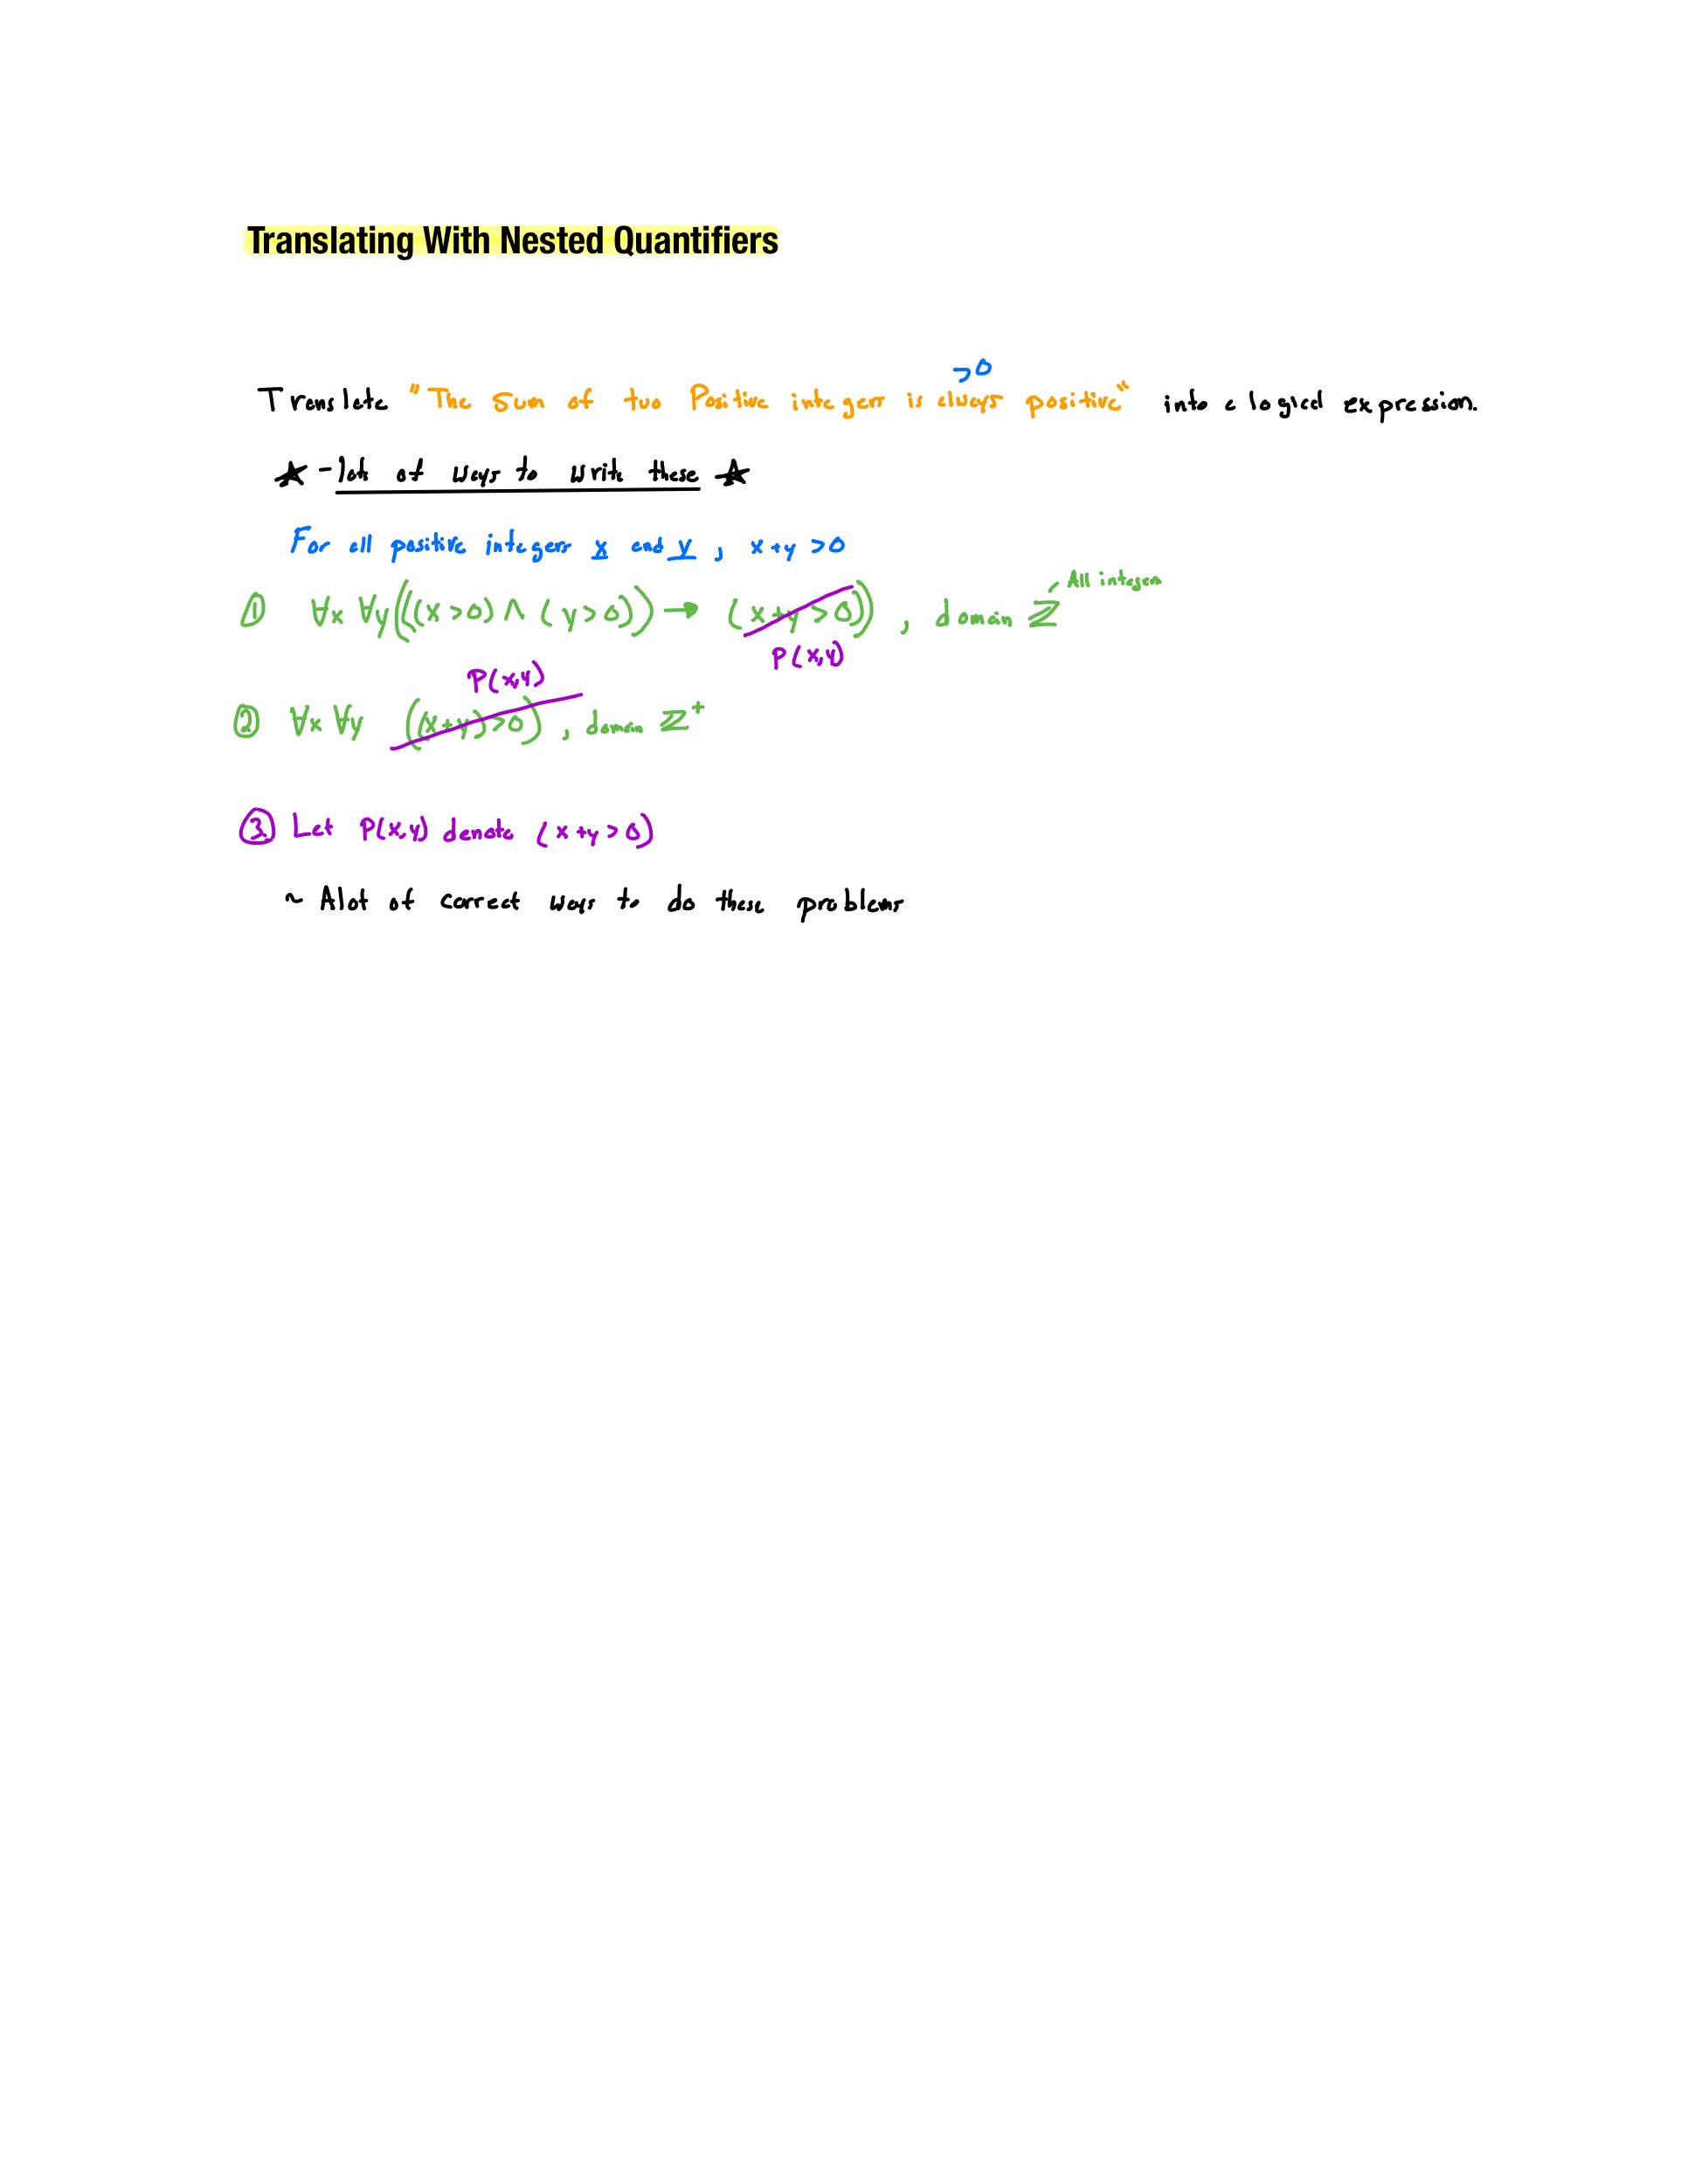 Translating With Nested Quantifiers
>0
Translate "The Sum of two Positive integers is always positive" into a logical expression.
★ - lots of ways to write these ★
For all positive integers x and y, x+y >0
All integers
① ∀x ∀y(((x>0) ∧ (y>0)) → (x+y>0)), domain ℤ
P(x,y)
P(x,y)
② ∀x ∀y ((x+y)>0), domain ℤ⁺
③ Let P(x,y) denote (x+y>0)
~ Alot of correct ways to do these problems